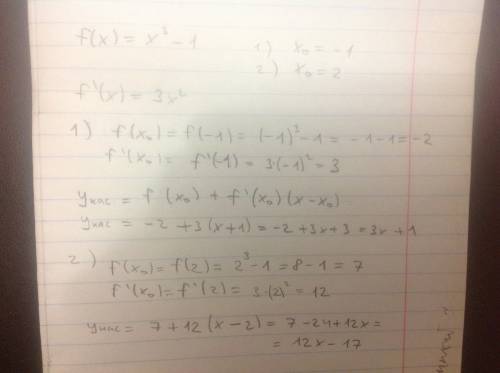 f(x) = x³ - 1
1) x₀ = -1
2) x₀ = 2
f'(x) = 3x²
1) f(x₀) = f(-1) = (-1)³ - 1 = -1 - 1 = -2
f'(x₀) = f'(-1) = 3·(-1)² = 3
yкас = f(x₀) + f'(x₀)(x - x₀)
yкас = -2 + 3(x+1) = -2 + 3x + 3 = 3x + 1
2) f(x₀) = f(2) = 2³ - 1 = 8 - 1 = 7
f'(x₀) = f'(2) = 3·(2)² = 12
yкас = 7 + 12(x - 2) = 7 - 24 + 12x =
= 12x - 17